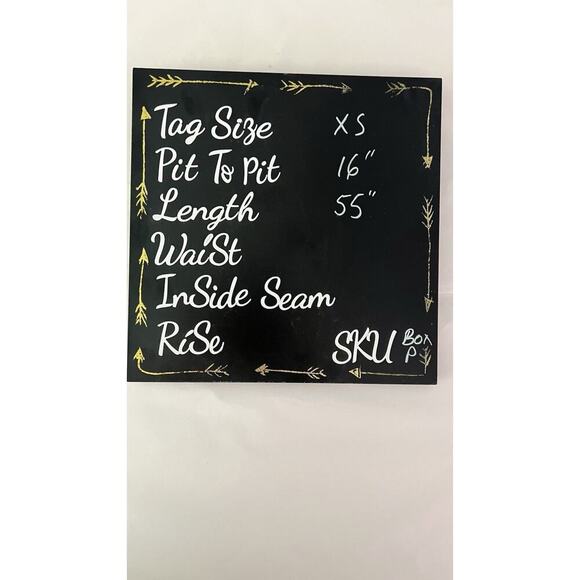 Tag Size XS
Pit To Pit 16"
Length 55"
WaiSt
InSide Seam
RiSe
SKU Box P